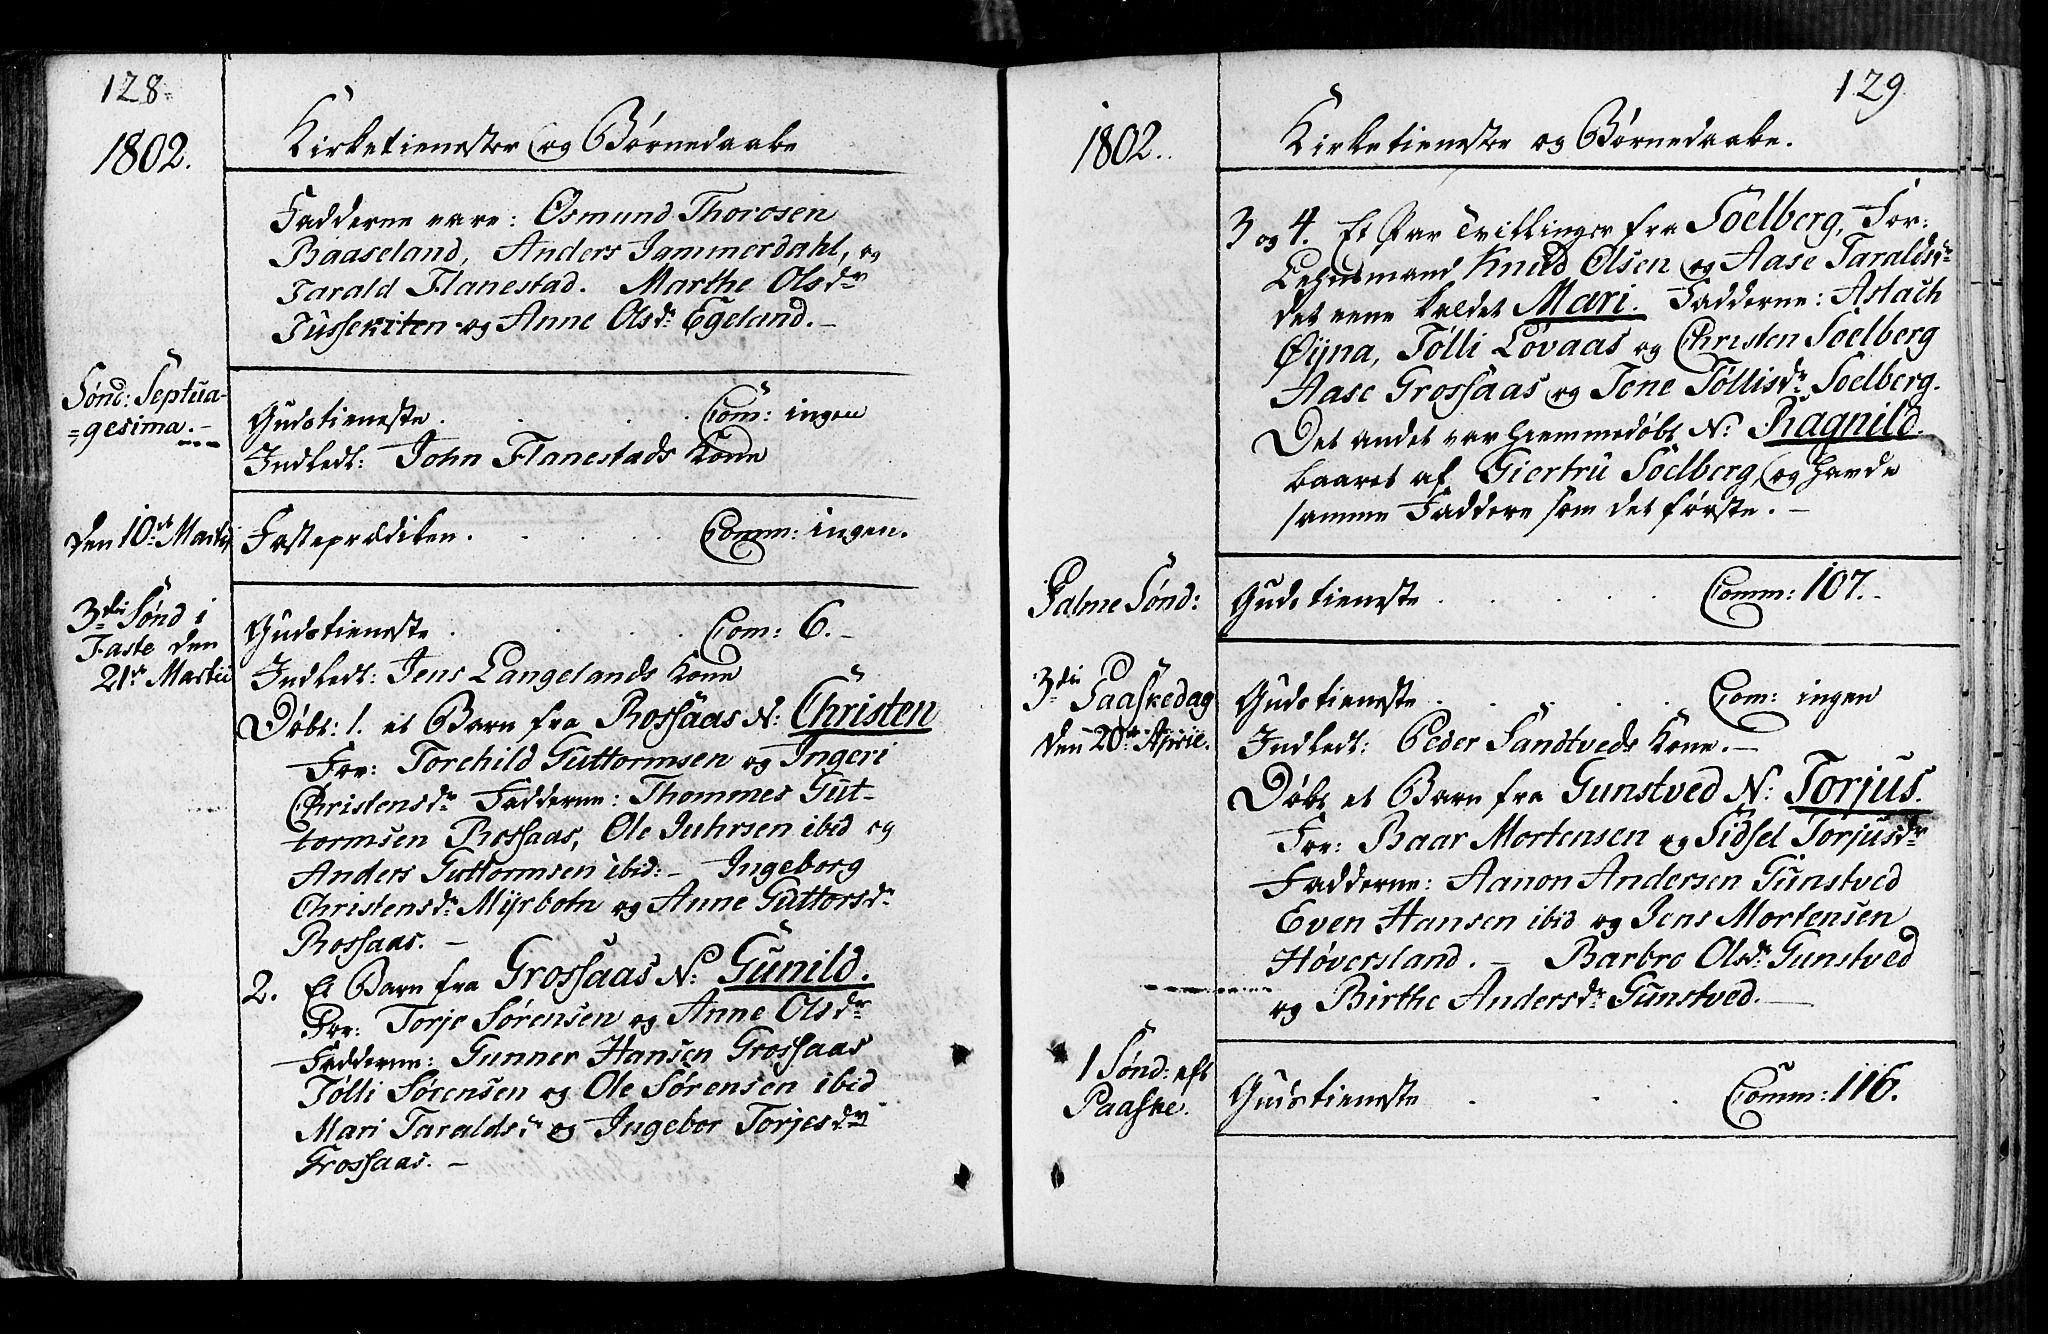 128
1802.
Kirketienester og Børnedaabe
Fadderne vare: Osmund Thorosen
Baaseland, Anders Jammerdahl, og
Tarald Flanestad. Marthe Olsdr
Jussekiten og Anne Olsdr Egeland. -
Sønd: Septua-
=gesima. -
Gudstieneste . . . . Com: ingen
Indledt: John Flanestads Kone
den 10de Martii
Fasteprædiken. . . . . Comm: ingen.
3die Sønd i
Faste den
21de Martii
Gudstieneste . . . . Com: 6. -
Indledt: Jens Langelands Kone
Døbt: 1. et Barn fra Rossaas N: Christen
For: Torchild Guttormsen og Ingeri
Christensdr Fadderne: Thommes Gut-
tormsen Rossaas, Ole Juhrsen ibid og
Anders Guttormsen ibid: - Ingeborg
Christensdr Myrbotn og Anne Guttorsdr
Rossaas. -
2. Et Barn fra Grossaas N: Gunild.
For: Torje Sørensen og Anne Olsdr
Fadderne: Gunner Hansen Grossaas
Tølli Sørensen og Ole Sørensen ibid
Mari Taraldsdr og Ingebor Torjesdr
Grossaas. -
129
1802.
Kirketieneste og Børnedaabe.
3 og 4. Et Par Tvillinger fra Soelberg, For:
Lehnsmand Knud Olsen og Aase Taraldsdr
det eene kaldet Mari. Fadderne: Aslach
Øyna, Tølli Løvaas og Christen Soelberg
Aase Grossaas og Tone Tøllisdr Soelberg.
Det andet var hiemmedøbt N: Ragnild.
baaret af Giertru Soelberg, og havde
samme Faddere som det første. -
Palme Sønd:
Gudstieneste . . . . . Comm: 107. -
3die Paaskedag
den 20de April.
Gudstieneste . . . . Com: ingen
Indledt: Peder Sandtveds Kone. -
Døbt et Barn fra Gunstved N: Torjus.
For: Baar Mortensen og Sidsel Torjusdr
Fadderne: Aanon Andersen Gunstved
Even Hansen ibid og Jens Mortensen
Høversland. - Barbro Olsdr Gunstved
og Birthe Andersdr Gunstved. -
1 Sønd: eft
Paaske.
Gudstieneste . . . . Comm: 116.